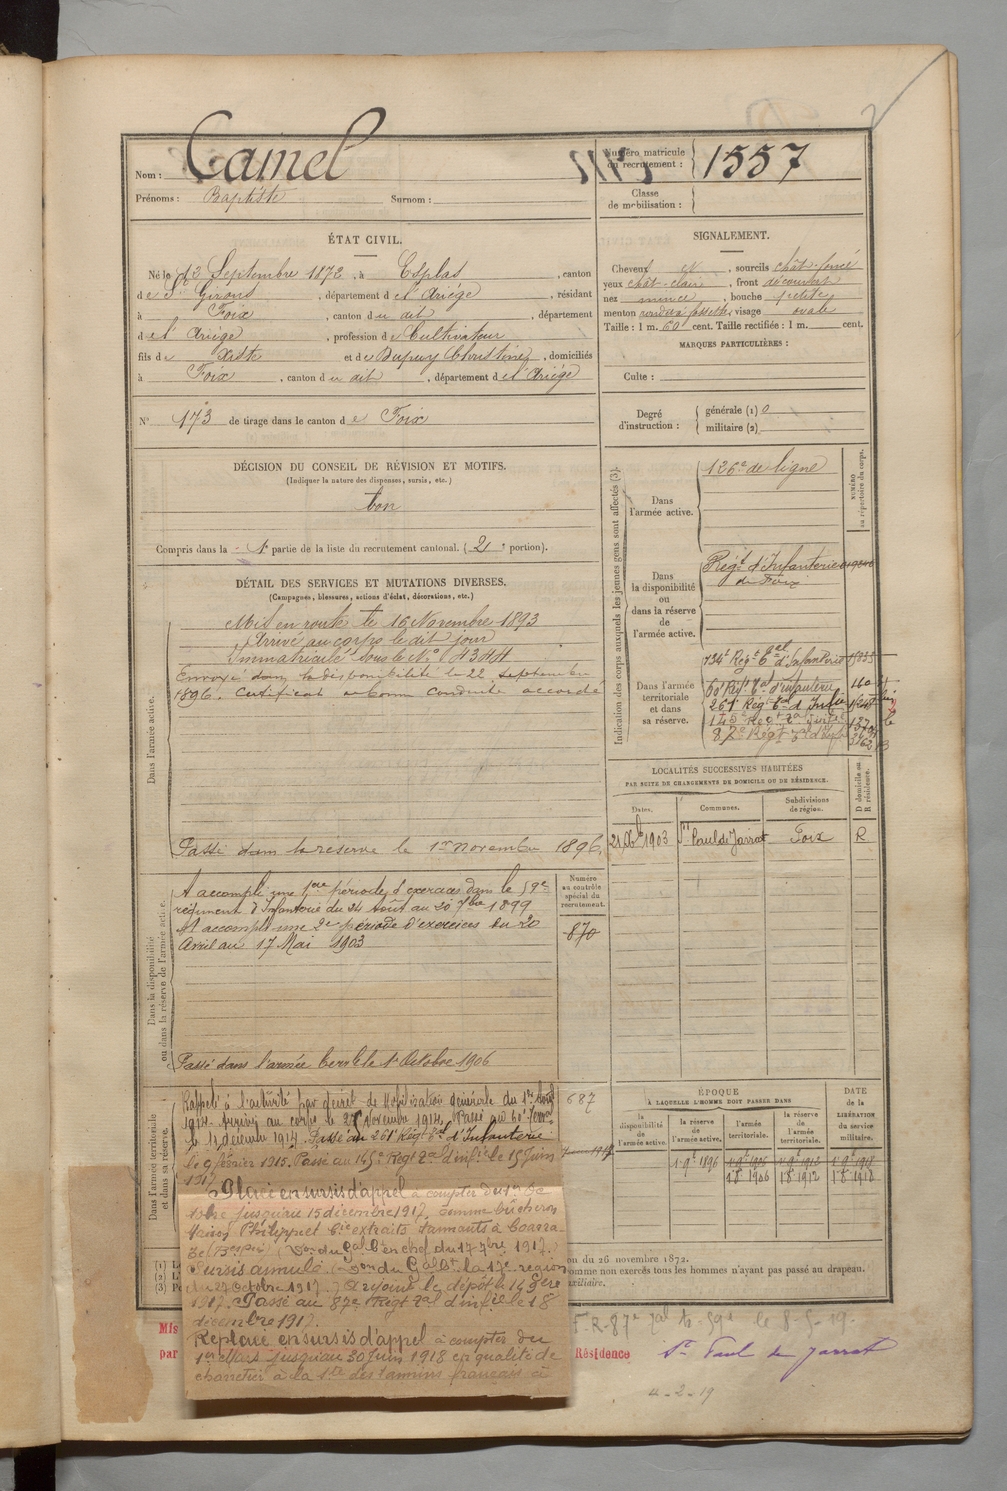 Nom : Camel
Prénoms : Baptiste Surnom :
Numéro matricule du recrutement : 1557
Classe de mobilisation :
ÉTAT CIVIL.
Né le 13 Septembre 1872, à Esplas, canton
de St Girons, département de l'Ariége, résidant
à Foix, canton du dit, département
de l'Ariége, profession de Cultivateur
fils de Xiste et de Dupuy Christine, domiciliés
à Foix, canton du dit, département de l'Ariége
N° 173 de tirage dans le canton de Foix
SIGNALEMENT.
Cheveux et, sourcils chât. foncé
yeux chât-clair, front découvert
nez mince, bouche petite
menton fossette, visage ovale
Taille : 1 m. 60 cent. Taille rectifiée : 1 m. cent.
MARQUES PARTICULIÈRES :
Culte :
Degré d'instruction : générale (1) 0
militaire (2)
DÉCISION DU CONSEIL DE RÉVISION ET MOTIFS.
(Indiquer la nature des dispenses, sursis, etc.)
bon
Compris dans la 1e partie de la liste du recrutement cantonal. (2e portion).
DÉTAIL DES SERVICES ET MUTATIONS DIVERSES.
(Campagnes, blessures, actions d'éclat, décorations, etc.)
Dans l'armée active.
Mis en route le 16 Novembre 1893
Arrivé au corps le dit jour
Immatriculé sous le N°
Envoyé dans la disponibilité le 22 septembre
1896. Certificat de bonne conduite accordé
Passé dans la réserve le 1er novembre 1896.
Dans la disponibilité ou dans la réserve de l'armée active.
A accompli une 1ere période d'exercices dans le 59e
régiment d'Infanterie du 24 Août au 20 7bre 1899
A accompli une 2e période d'exercices du 20
Avril au 17 Mai 1903
Passé dans l'armée territle le 1er Octobre 1906
Numéro au contrôle spécial du recrutement.
870
687
Dans l'armée territoriale et dans sa réserve.
Rappelé à l'activité par décret de Mobilisation générale du 1er Août
1914. Arrivé au corps le 27 Novembre 1914. Passé au 60e Terr
le 11 décembre 1914. Passé au 261e Régt Tal d'Infanterie
le 9 février 1915. Passé au 145e Régt Tal d'infie le 15 Juin
1917
Placé en sursis d'appel à compter du 1er Oc
tobre jusqu'au 15 décembre 1917, comme bûcheron
Maison Philippe et Cie extraits tannants à Coarra
ze (Bses Pyr) (Don du Gal Ct en chef du 17 7bre 1917.)
Sursis annulé (Don du Gal Ct la 17e région
du 27 octobre 1917.) A rejoint le dépôt le
1917. Passé au 87e Régt Tal d'infie le 18
décembre 1917.
Replacé en sursis d'appel à compter du
1er Mars jusqu'au 30 Juin 1918 en qualité de
charretier à la Sté des tannins français à
Indication des corps auxquels les jeunes gens sont affectés (3).
NUMÉRO au répertoire du corps.
Dans l'armée active.
126e de ligne
Dans la disponibilité ou dans la réserve de l'armée active.
Régt d'Infanterie
de Foix
Dans l'armée territoriale et dans sa réserve.
134e Régt Tal d'Infanterie
60e Régt Tal d'infanterie
261e Régt Tal d'Infie
145e Régt Tal d'infie
87e Régt Tal d'Infie
LOCALITÉS SUCCESSIVES HABITÉES
PAR SUITE DE CHANGEMENTS DE DOMICILE OU DE RÉSIDENCE.
Dates. Communes. Subdivisions de région. D domicile ou R résidence.
21 1903 St Paul de Jarrat Foix R
ÉPOQUE
À LAQUELLE L'HOMME DOIT PASSER DANS
la disponibilité de l'armée active.
la réserve de l'armée active.
l'armée territoriale.
la réserve de l'armée territoriale.
DATE de la LIBÉRATION du service militaire.
1 9e 1896 1 9e 1906 1 9e 1912 1 9e 1918
1 8 1906 1 8 1912 1 8 1918
on du 26 novembre 1872.
omme non exercés tous les hommes n'ayant pas passé au drapeau.
uxiliaire.
Mis
par
F.R. 87e Tal le 8-5-19.
Résidence St Paul de Jarrat
4-2-19